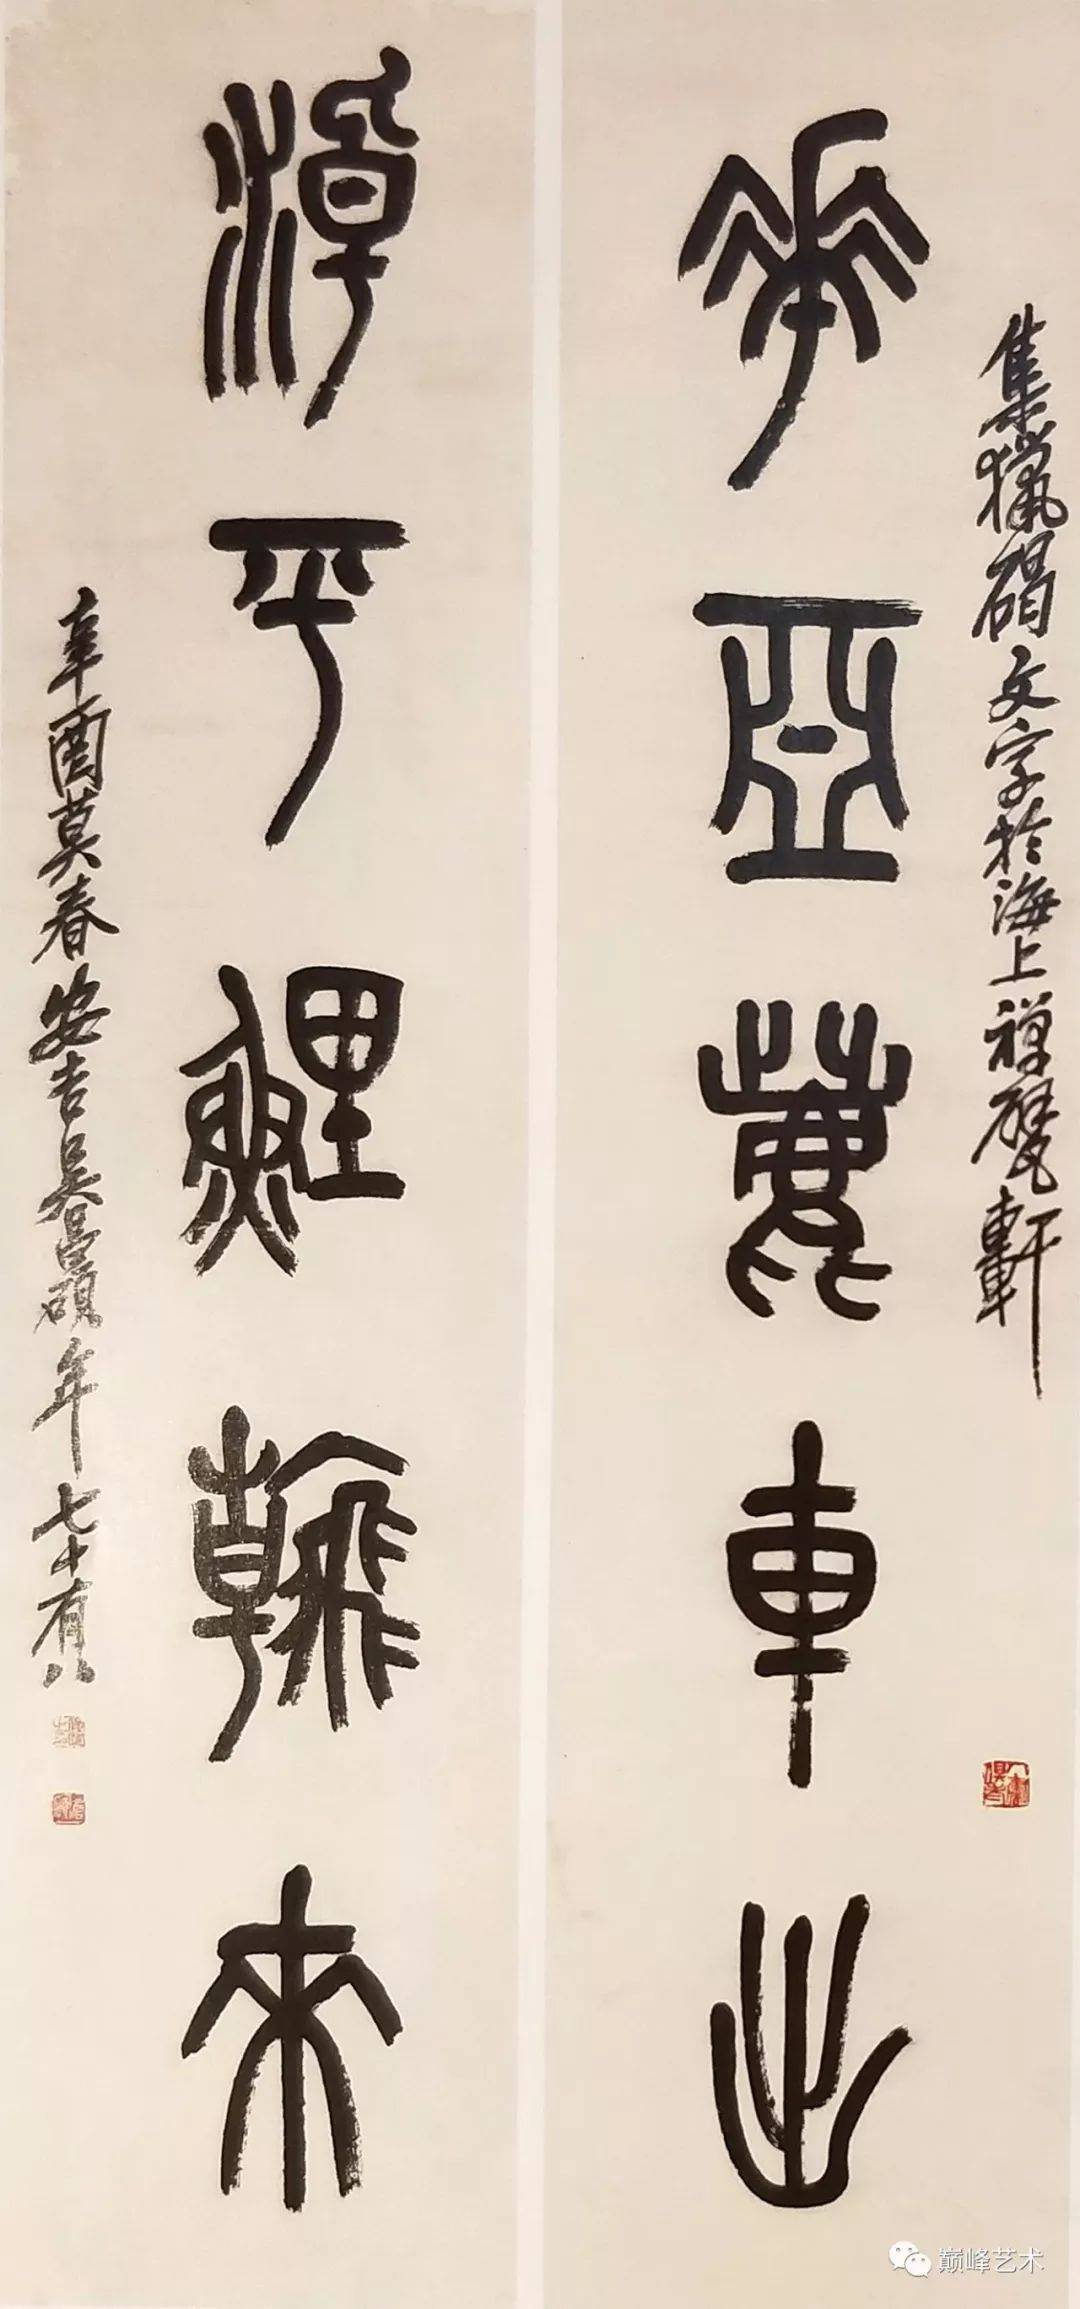 集獵碣文字於海上禪甓軒
華亞鹿車出
淖平鯉翰來
辛酉莫春安吉吳昌碩年七十有八
巅峰艺术